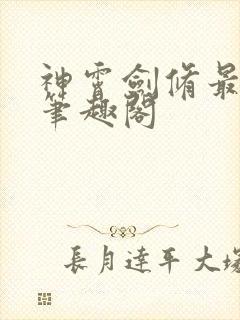 神霄劍脩最
筆趣閣
長月達平大